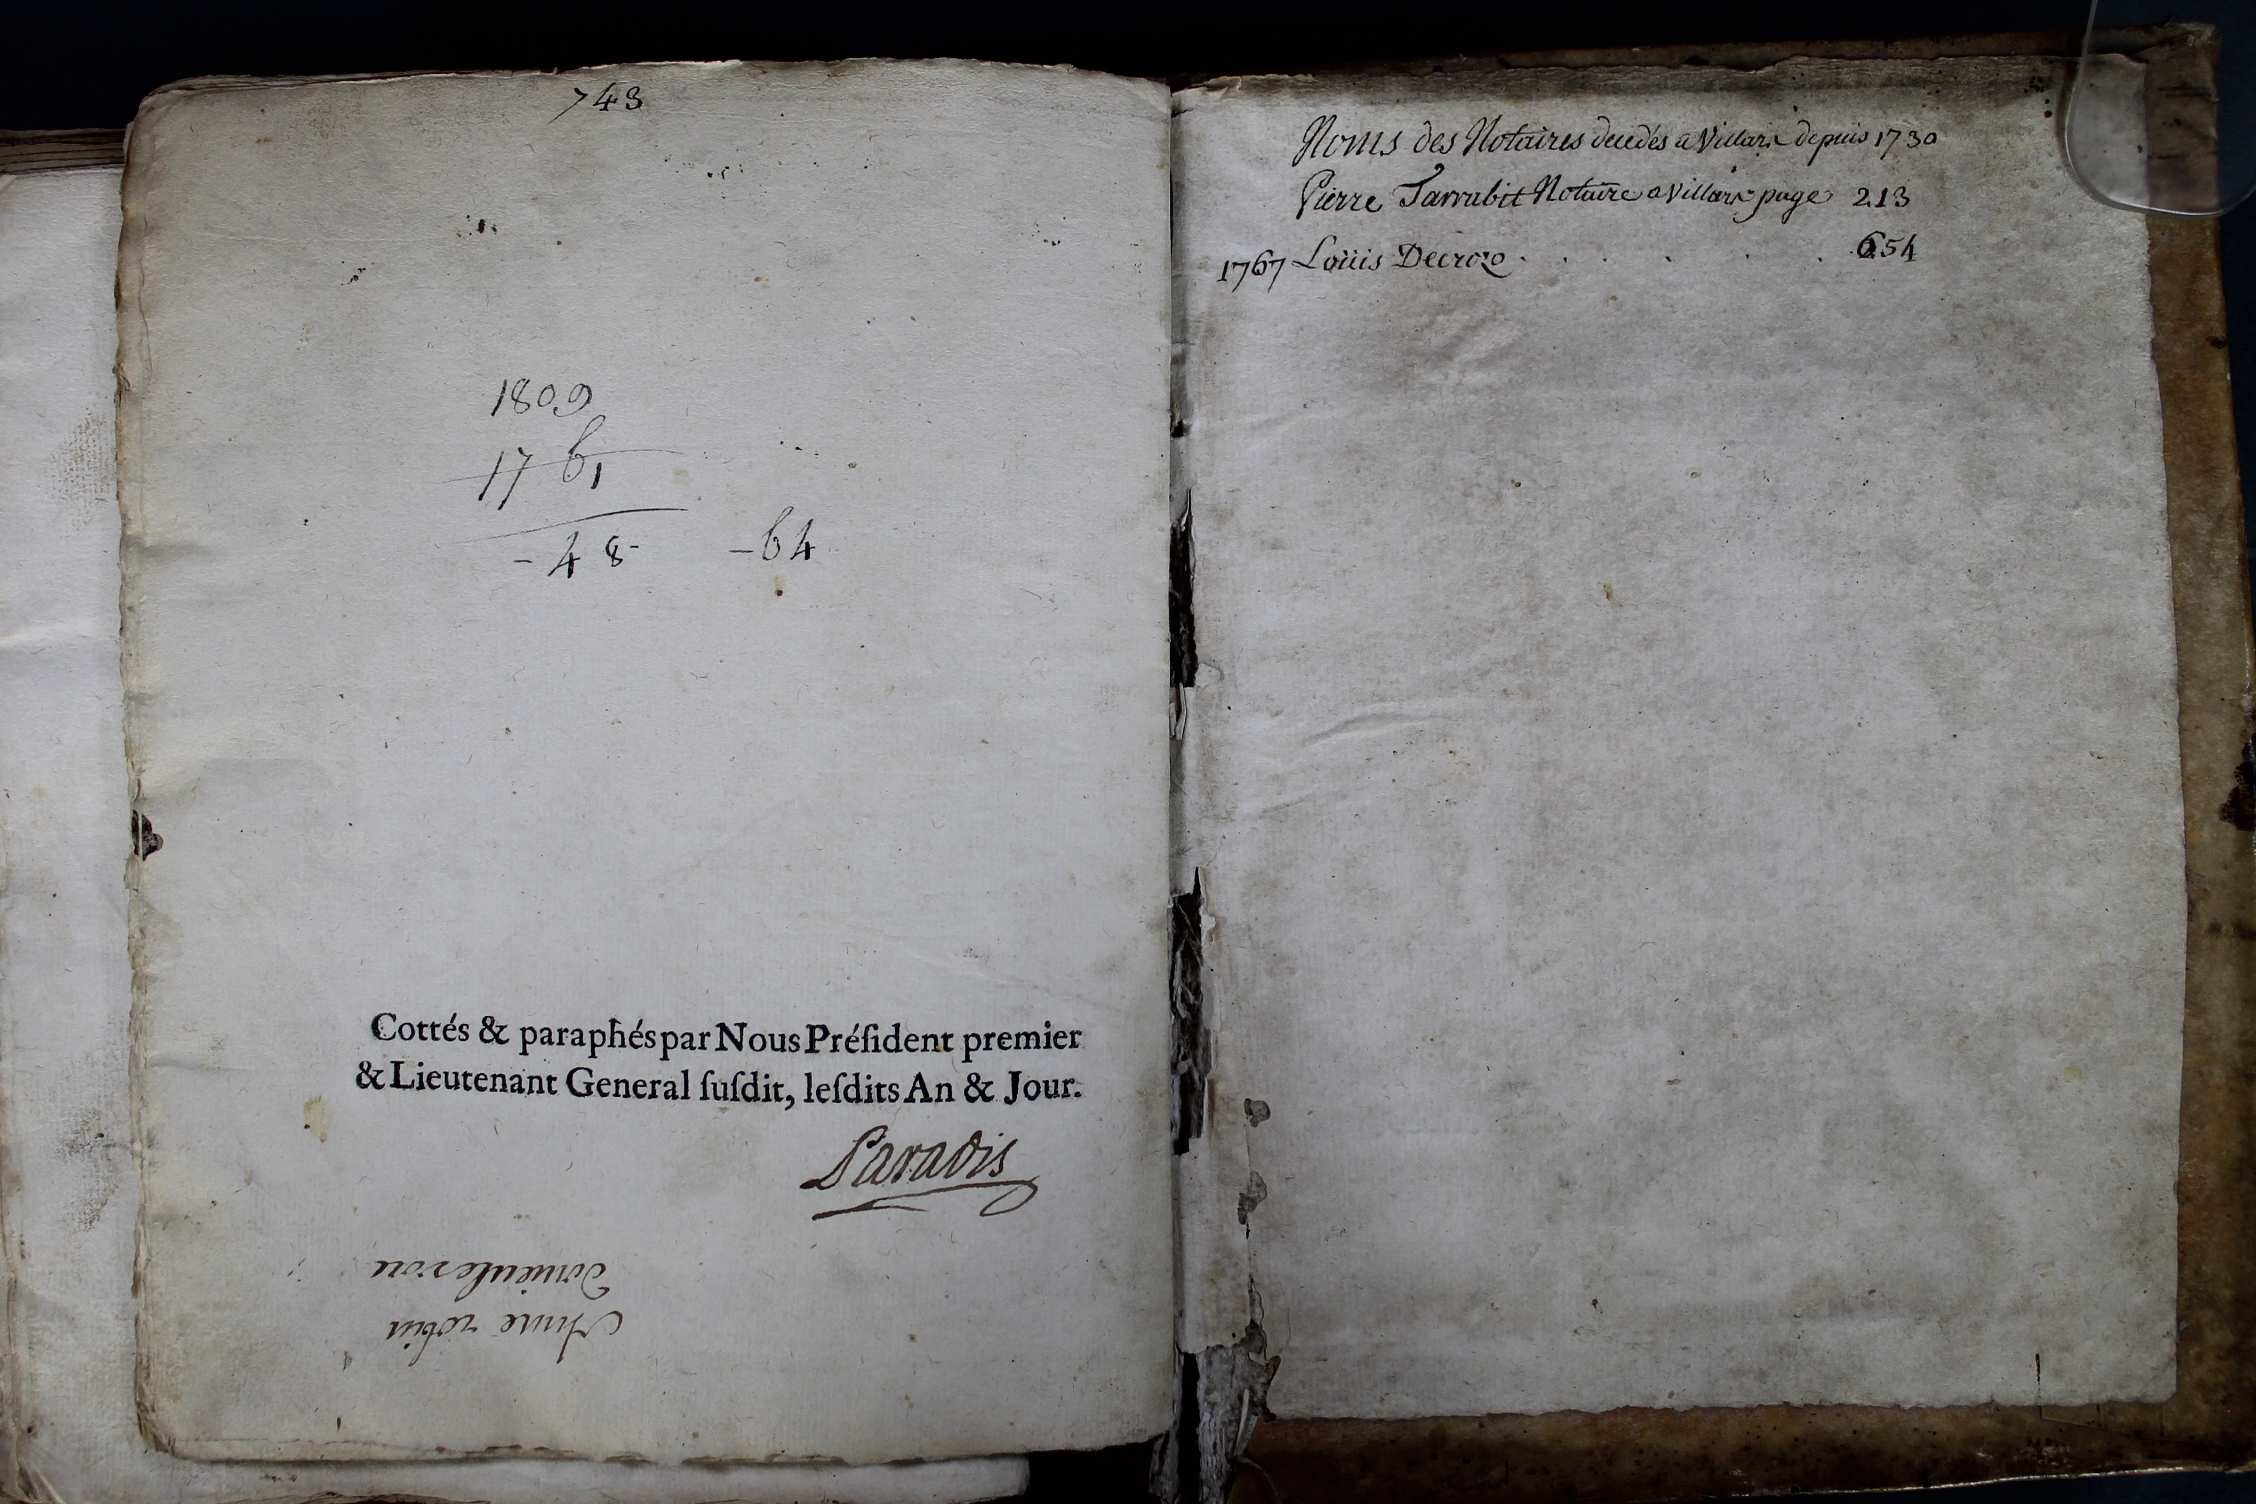 743
1809
1761
- 48 - - 64
Cottés & paraphés par Nous Préſident premier
& Lieutenant General ſuſdit, leſdits An & Jour.
Paradis
Anne robin
Noms des Notaires decedés a Villars depuis 1730
Pierre Jarrubit Notaire a Villars page 213
1767 Loüis Decroso . . . . . . 654